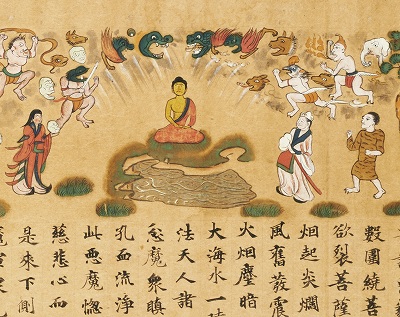 數圍繞菩
欲裂菩薩
烟起炎爓
風奮發震
火烟塵暗
大海水一
法天人諸
忿魔衆瞋
孔血流淨
此悪魔惱
慈悲心而
是來下側